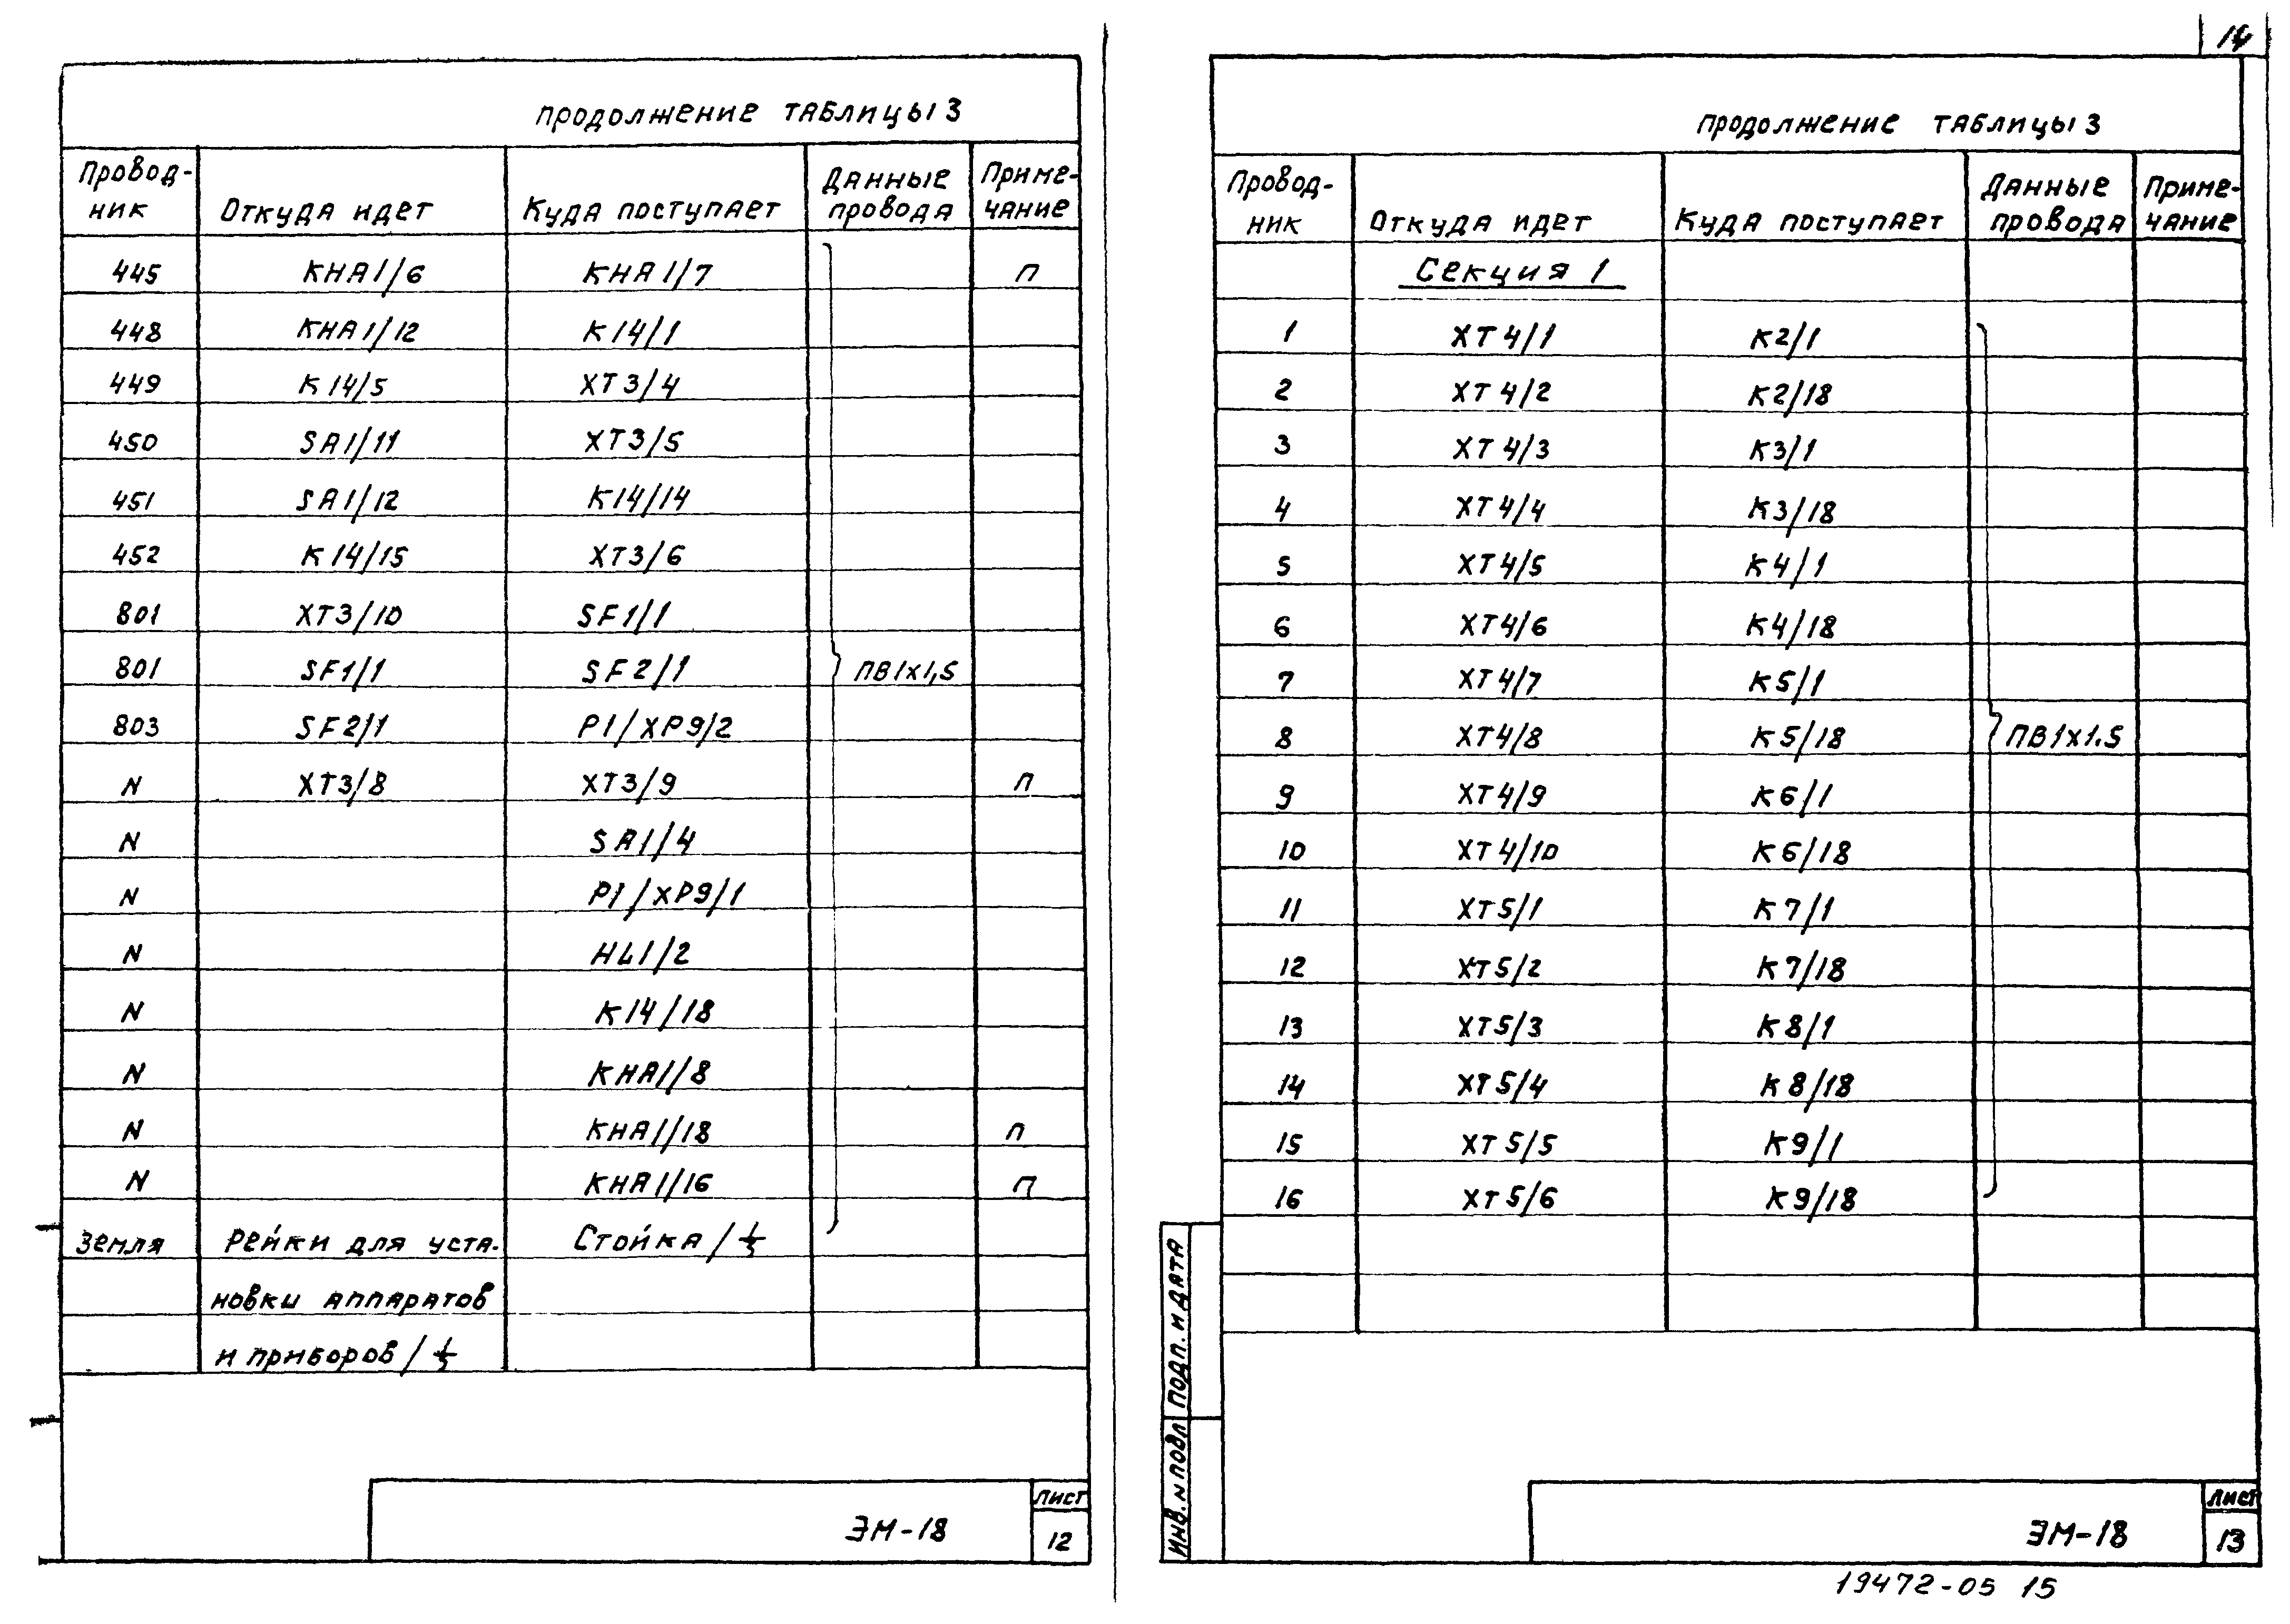 14
Продолжение таблицы 3
Провод-
ник Откуда идет Куда поступает Данные провода Приме-
чание
445 КНА1/6 КНА1/7 П
448 КНА1/12 К14/1
449 К14/5 ХТ3/4
450 SA1/11 ХТ3/5
451 SA1/12 К14/14
452 К14/15 ХТ3/6
801 ХТ3/10 SF1/1
801 SF1/1 SF2/1 ПВ1х1,5
803 SF2/1 Р1/ХР9/2
N ХТ3/8 ХТ3/9 П
N SA1/4
N Р1/ХР9/1
N HL1/2
N К14/18
N КНА1/8
N КНА1/18 П
N КНА1/16 П
Земля Рейки для уста- Стойка/⏚
новки аппаратов
и приборов/⏚
ЭМ-18
Лист
12
Продолжение таблицы 3
Провод-
ник Откуда идет Куда поступает Данные провода Приме-
чание
Секция 1
1 ХТ4/1 К2/1
2 ХТ4/2 К2/18
3 ХТ4/3 К3/1
4 ХТ4/4 К3/18
5 ХТ4/5 К4/1
6 ХТ4/6 К4/18
7 ХТ4/7 К5/1
8 ХТ4/8 К5/18 ПВ1х1.5
9 ХТ4/9 К6/1
10 ХТ4/10 К6/18
11 ХТ5/1 К7/1
12 ХТ5/2 К7/18
13 ХТ5/3 К8/1
14 ХТ5/4 К8/18
15 ХТ5/5 К9/1
16 ХТ5/6 К9/18
Инв. N подл Подп. и дата
ЭМ-18
Лист
13
19472-05 15